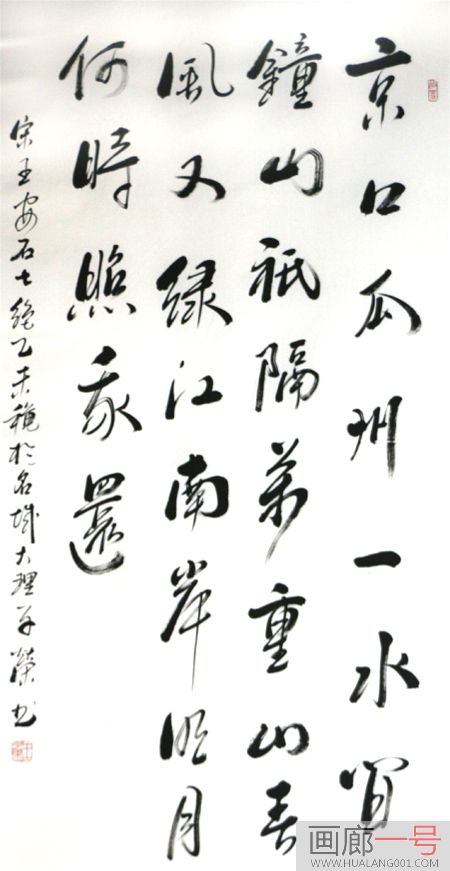 京口瓜州一水間
鐘山祇隔萬重山春
風又绿江南岸明月
何時照我還
宋王安石七绝乙未穐於名城大理
画廊一号
WWW.HUALANG001.COM